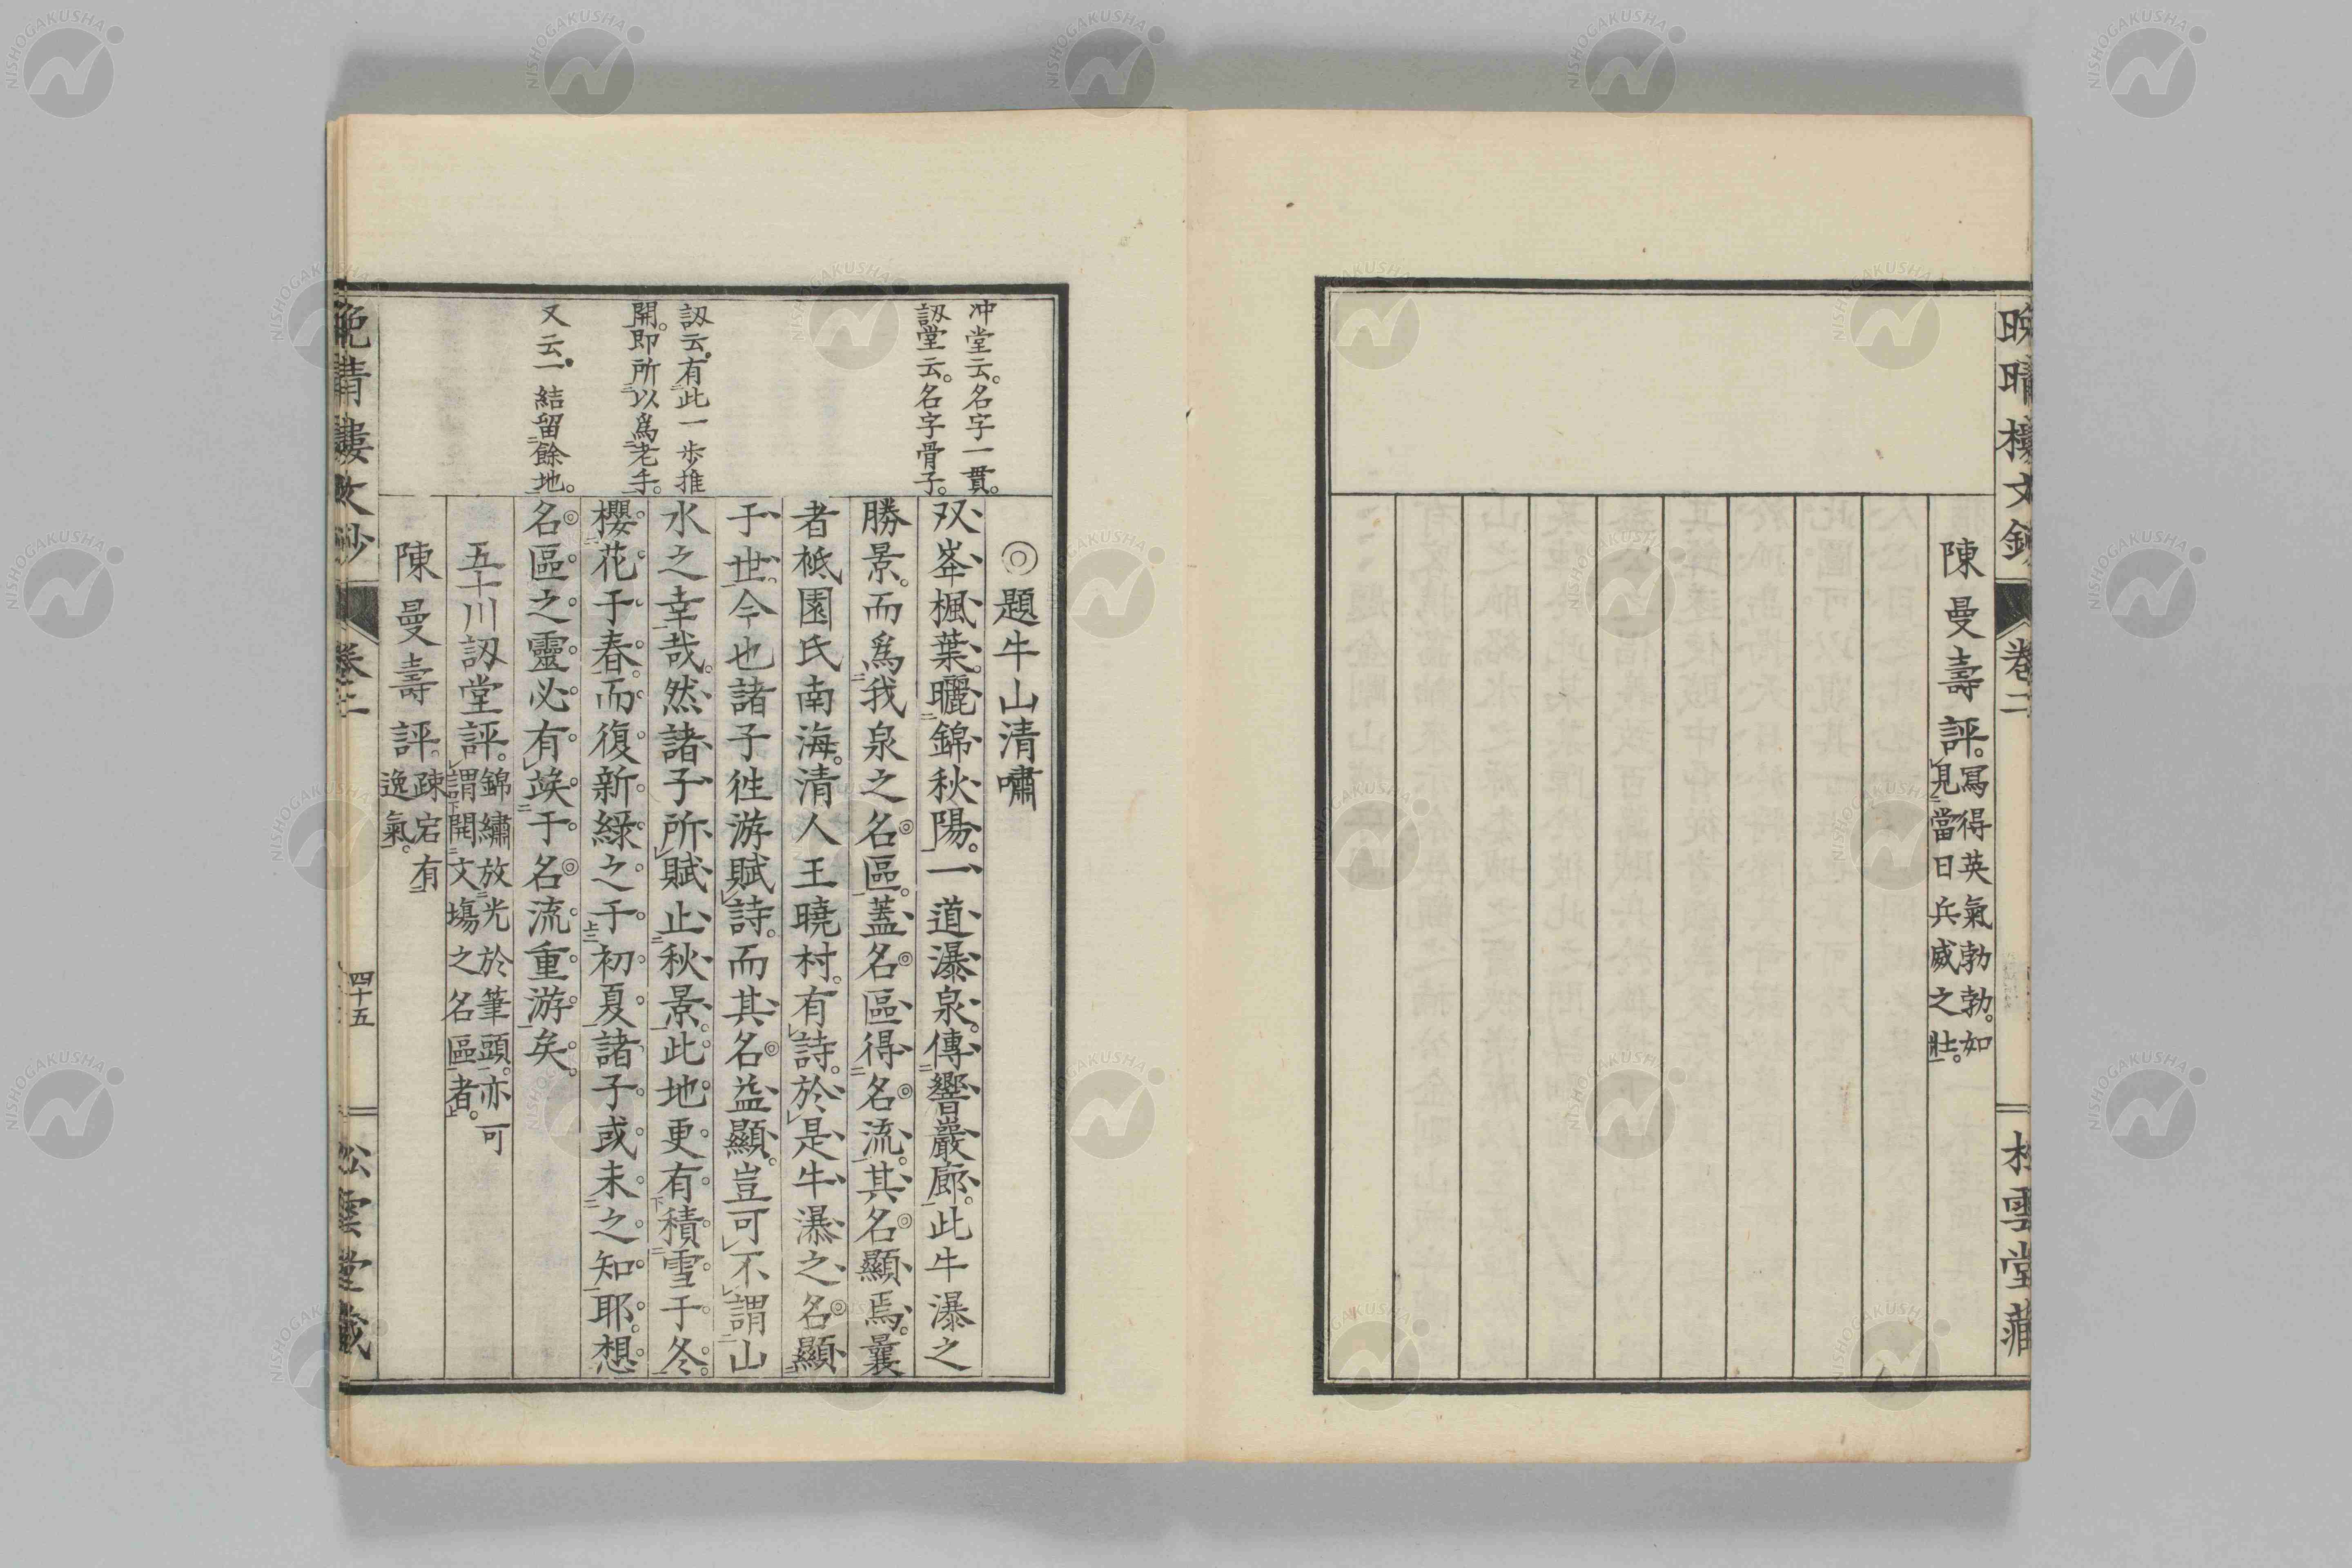 晩晴樓文鈔 卷二 松雲堂藏
陳曼壽評。寫得英氣勃勃。如
見當日兵威之壯。
冲堂云。名字一貫。
訒堂云。名字骨子。
訒云。有此一步推
開。即所以爲老手。
又云。一結留餘地。
◎題牛山清嘯
双峯楓葉。曬錦秋陽。一道瀑泉。傳響巖廊。此牛瀑之
勝景。而爲我泉之名區。蓋名區得名流。其名顯焉。曩
者祇園氏南海。清人王曉村。有詩。於是牛瀑之名顯
于世。今也諸子徃游賦詩。而其名益顯。豈可不謂山
水之幸哉。然諸子所賦止秋景。此地更有積雪于冬。
櫻花于春。而復新綠之于初夏。諸子或未之知耶。想
名區之靈必有竢于名流重游矣。
五十川訒堂評。錦繡放光於筆頭。亦可
謂開文塲之名區者。
陳曼壽評。疎宕有
逸氣。
晩晴樓文鈔 卷二 四十五 松雲堂藏
NISHOGAKUSHA